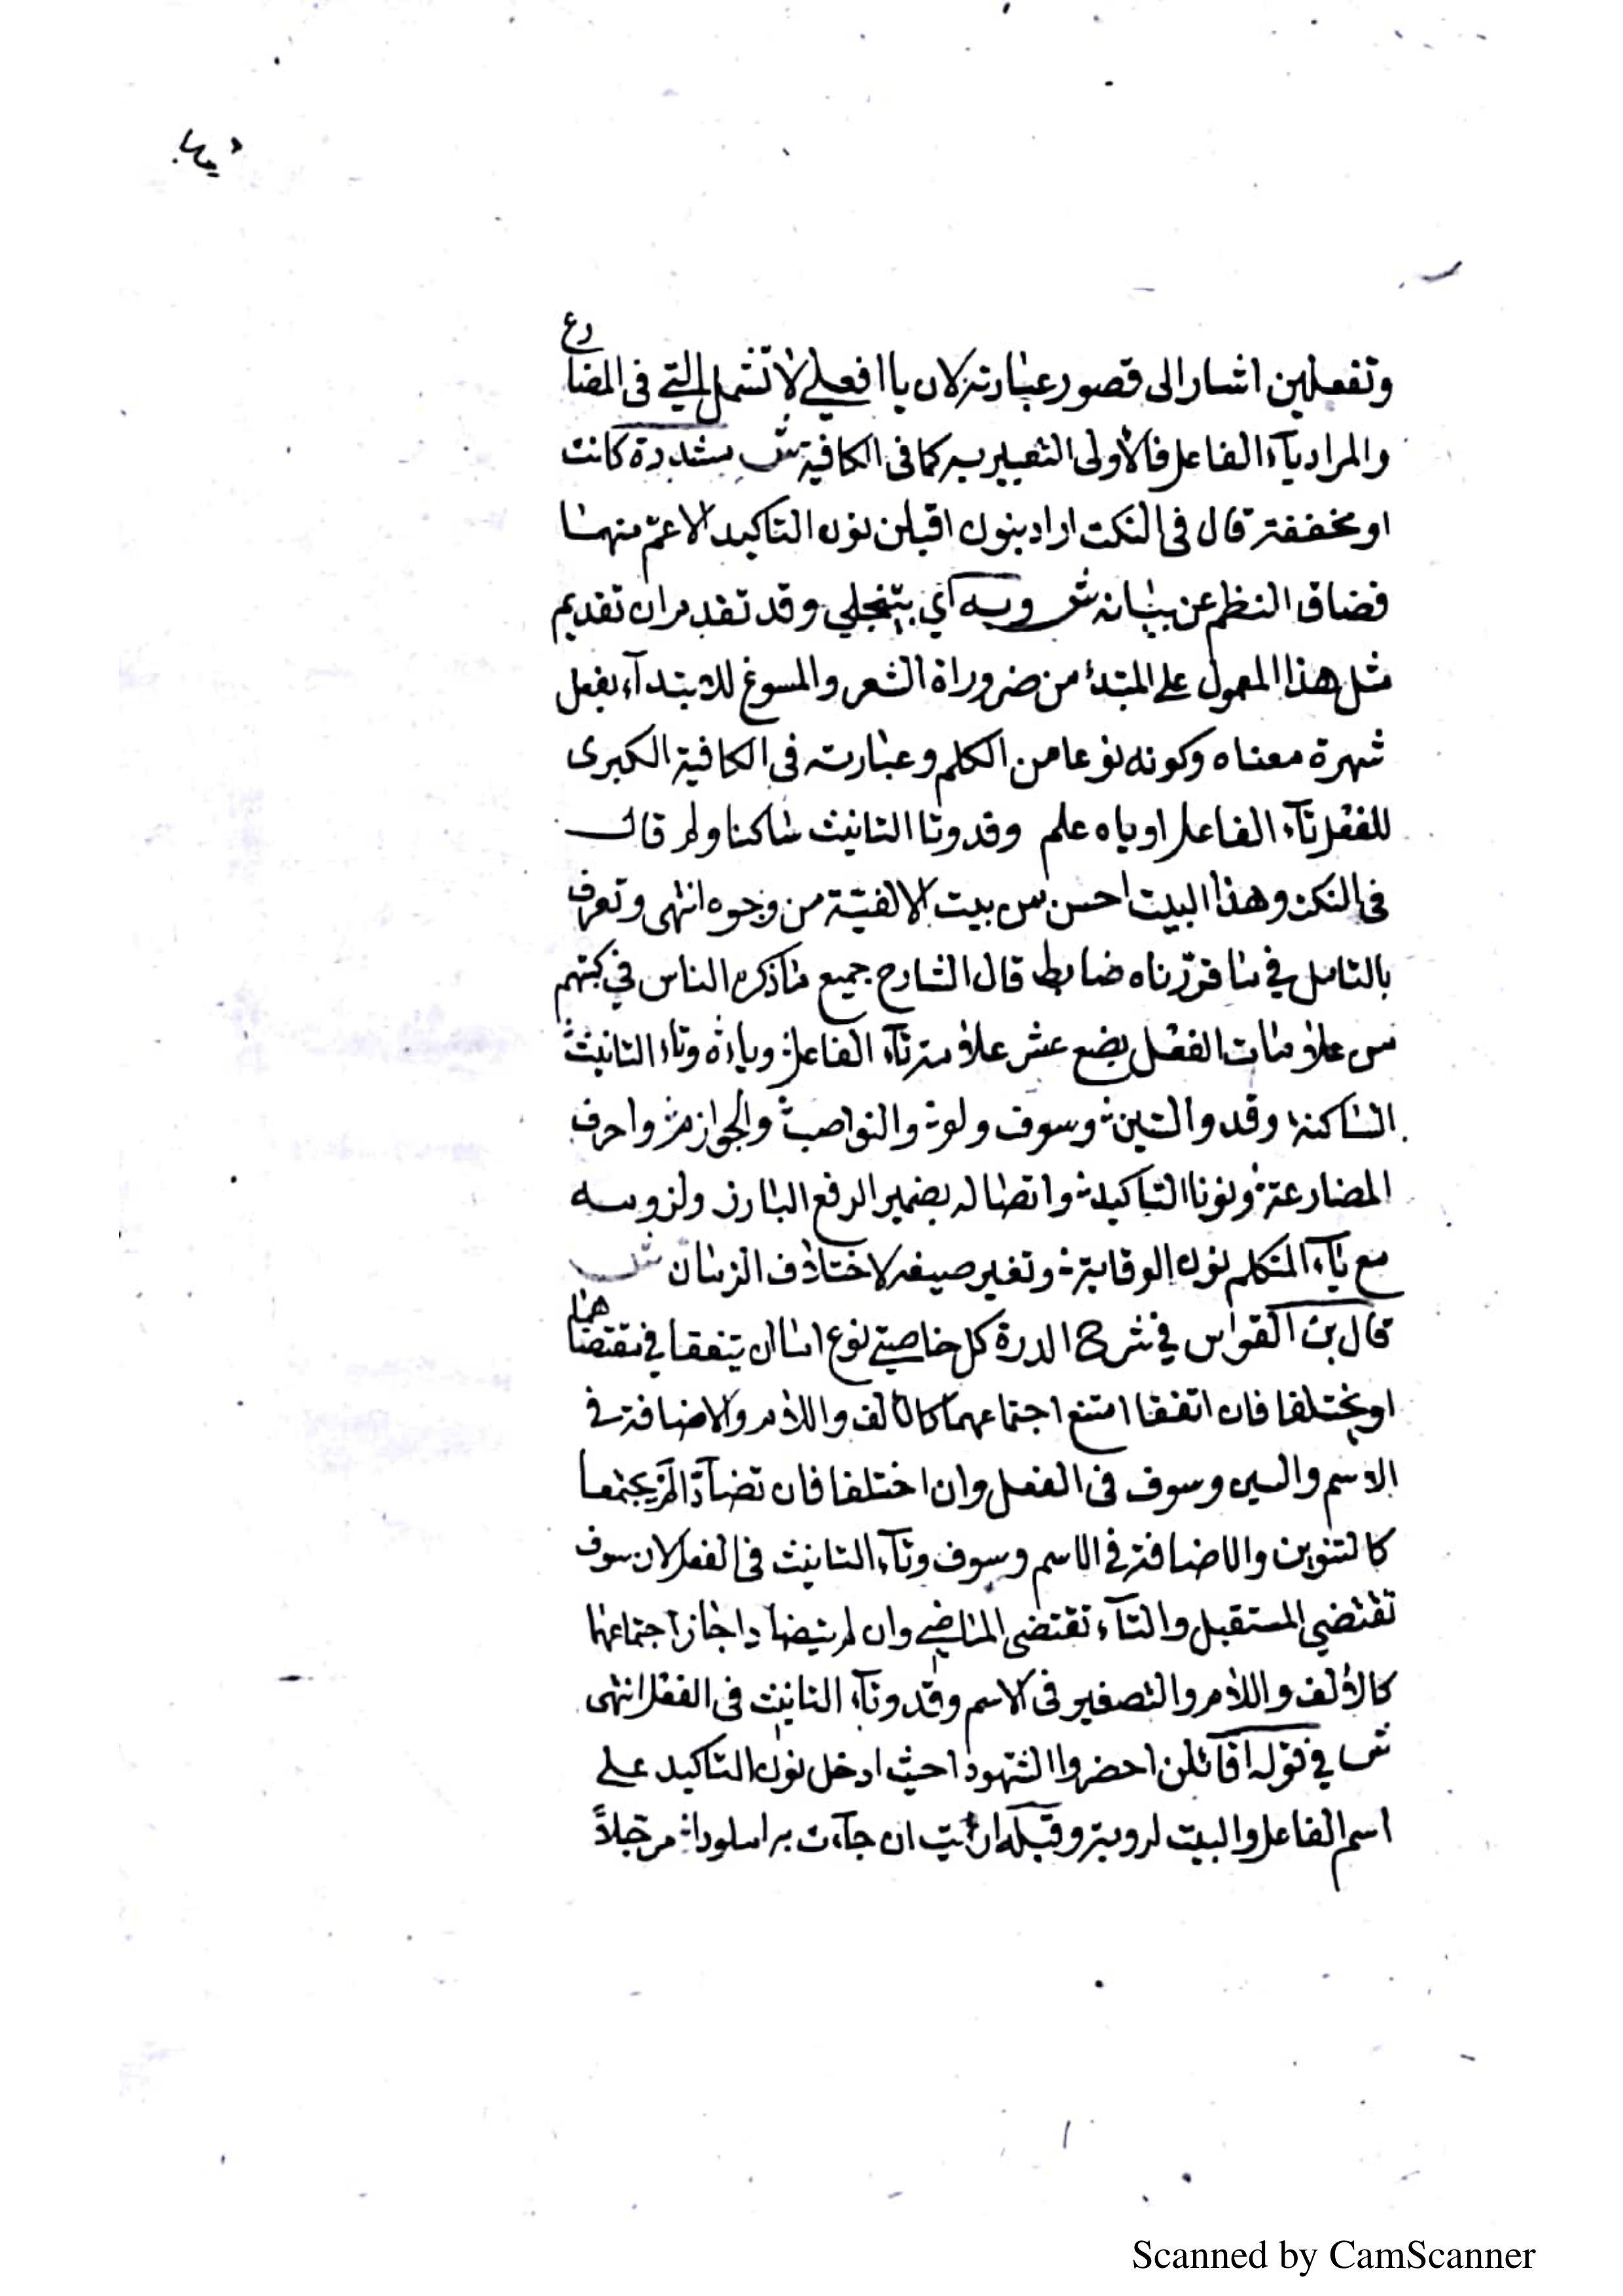 وتفعلين اشار الى قصور عبارته لان يا افعلي لا تشمل التي في المضارع
والمراد ياء الفاعل فالأولى التعبير به كما في الكافية ش مشددة كانت
او مخففة قال في النكت اراد بنون اقبلن نون التاكيد الاعم منهما
فضاق النظم عن بيانه ش وبه اي بينجلي وقد تقدم ان تقديم
مثل هذا المعمول على المبتدأ من ضروراة الشعر والمسوغ للابتداء بفعل
شهرة معناه وكونه نوعا من الكلم وعبارته في الكافية الكبرى
للفعل تآء الفاعل او ياه علم وقد وتا التانيث ساكنا ولم قال
في النكت وهذا البيت احسن من بيت الالفية من وجوه انتهى وتعرف
بالتامل في ما قررناه ضابط قال الشارح جميع ما ذكره الناس في كتبهم
من علامات الفعل بضع عشر علامة تآء الفاعل وياؤه وتاء التانيث
الساكنة وقد والسين وسوف ولو والنواصب والجوازم واحرف
المضارعة ونونا التاكيد واتصاله بضمير الرفع البارز ولزومه
مع يآء المتكلم نون الوقاية وتغير صيغه لاختلاف الزمان ش
قال بن القواس في شرح الدرة كل خاصتي نوع اما ان يتفقا في مقتضاهما
او يختلفا فان اتفقا امتنع اجتماعهما كالالف واللام والاضافة في
الاسم والسين وسوف في الفعل وان اختلفا فان تضآدّا لم يجتمعا
كالتنوين والاضافة في الاسم وسوف وتآء التانيث في الفعل لان سوف
تقتضي المستقبل والتآء تقتضي الماضي وان لم يتضادا جاز اجتماعهما
كالألف واللام والتصغير في الاسم وقد وتآء التانيث في الفعل انتهى
ش في قوله اقائلن احضروا الشهودا حيث ادخل نون التاكيد على
اسم الفاعل والبيت لروبة وقبله اريت ان جآءت به املودا مرجلاً
Scanned by CamScanner